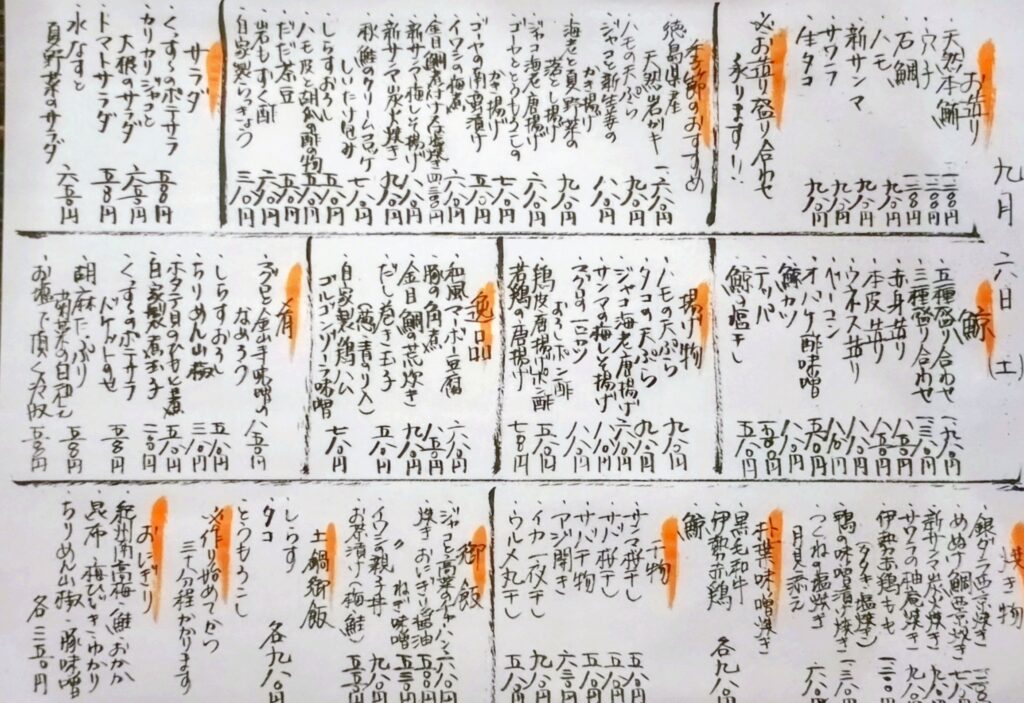 九月六日(土)
お造り
・天然本鮪 一二八〇円
・穴子 一二〇〇円
・石鯛 一二八〇円
・ハモ 九八〇円
・新サンマ 九八〇円
・サワラ 九八〇円
・生タコ 九八〇円
※お造り盛り合わせ
承ります!!
季節のおすすめ
徳島県産
天然岩ガキ 一六〇〇円
・ハモの天ぷら 九八〇円
・ジャコと新生姜の
かき揚げ 八八〇円
・海老と夏野菜の
落とし揚げ 九八〇円
・ジャコ海老唐揚げ 六八〇円
・ゴーヤととうもろこしの
かき揚げ 七八〇円
・ゴーヤの南蛮漬け 五八〇円
・イワシの梅煮 六八〇円
・金目鯛煮付け又は塩焼き 四三〇〇円
・新サンマ梅しそ揚げ 九八〇円
・新サンマ炭火焼き 九八〇円
・秋鮭のクリームコロッケ 八八〇円
・しいたけ包み 七八〇円
・しらすおろし 五八〇円
・ハモ皮と胡瓜の酢の物 五八〇円
・だだ茶豆 五八〇円
・岩もずく酢 六八〇円
・自家製らっきょう 三八〇円
サラダ
・くんたまのポテサラ 五八〇円
・カリカリジャコと
大根のサラダ 六五〇円
・トマトサラダ 五八〇円
・水なすと
夏野菜のサラダ 六五〇円
鯨
・五種盛り合わせ 一九八〇円
・三種盛り合わせ 一三八〇円
・赤身造り 八五〇円
・本皮造り 八五〇円
・ウネス造り 八五〇円
・ベーコン 八八〇円
・オバケ酢味噌
・鯨カツ 八八〇円
・テッパ 五五〇円
・鯨塩干し 五八〇円
揚げ物
・ハモの天ぷら 九八〇円
・タコの天ぷら 九八〇円
・ジャコ海老唐揚げ 六八〇円
・サンマの梅しそ揚げ 九八〇円
・マグロ一口カツ 八八〇円
おろしポン酢
・鶏皮唐揚げポン酢 五八〇円
・若鶏の唐揚げ 七八〇円
逸品
・和風マーボー豆腐 六八〇円
・豚の角煮 八五〇円
・金目鯛の荒炊き 九八〇円
・だし巻き玉子 五八〇円
(葱・青のり入)
・自家製鶏ハム 七八〇円
ゴルゴンゾーラ味噌
肴
・マグロと金山寺味噌の
なめろう 八五〇円
・しらすおろし 五八〇円
・ちりめん山椒 三八〇円
・ホタテ貝のひもと煮 五八〇円
・自家製煮玉子 二〇〇円
・くんたまのポテサラ
バケットのせ 五八〇円
・胡麻たっぷり
青菜の白和え 五八〇円
・お塩で頂く冷奴 五五〇円
焼き物
・銀ダラ西京焼き
・めぬけ鯛西京焼き
・新サンマ炭火焼き 九八〇円
・サワラの柚庵焼き 九八〇円
・伊勢赤鶏もも
(タタキ・塩焼き)
・鴨の味噌漬け焼き 一三八〇円
・つくねの塩焼き 六八〇円
月見添え
朴葉味噌焼き
・黒毛和牛
・伊勢赤鶏 各九八〇円
・鯨
干物
・サンマ桜干し 五八〇円
・サバ桜干し 五八〇円
・サバ干物 五八〇円
・アジ開き 六三〇円
・イカ一夜干し 九八〇円
・ウルメ丸干し 五八〇円
御飯
・ジャコと高菜のチャーハン 六八〇円
・焼きおにぎり醤油 五〇〇円
〃 ねぎ味噌 五五〇円
・イワシの親子丼 九八〇円
・お茶漬け(梅・鮭) 五五〇円
土鍋御飯
・しらす
・タコ 各九八〇円
・とうもろこし
※作り始めてから
三十分程かかります
おにぎり
・紀州南高梅・鮭・おかか
・昆布・梅ひじき・ゆかり
・ちりめん山椒・豚味噌
各三五〇円